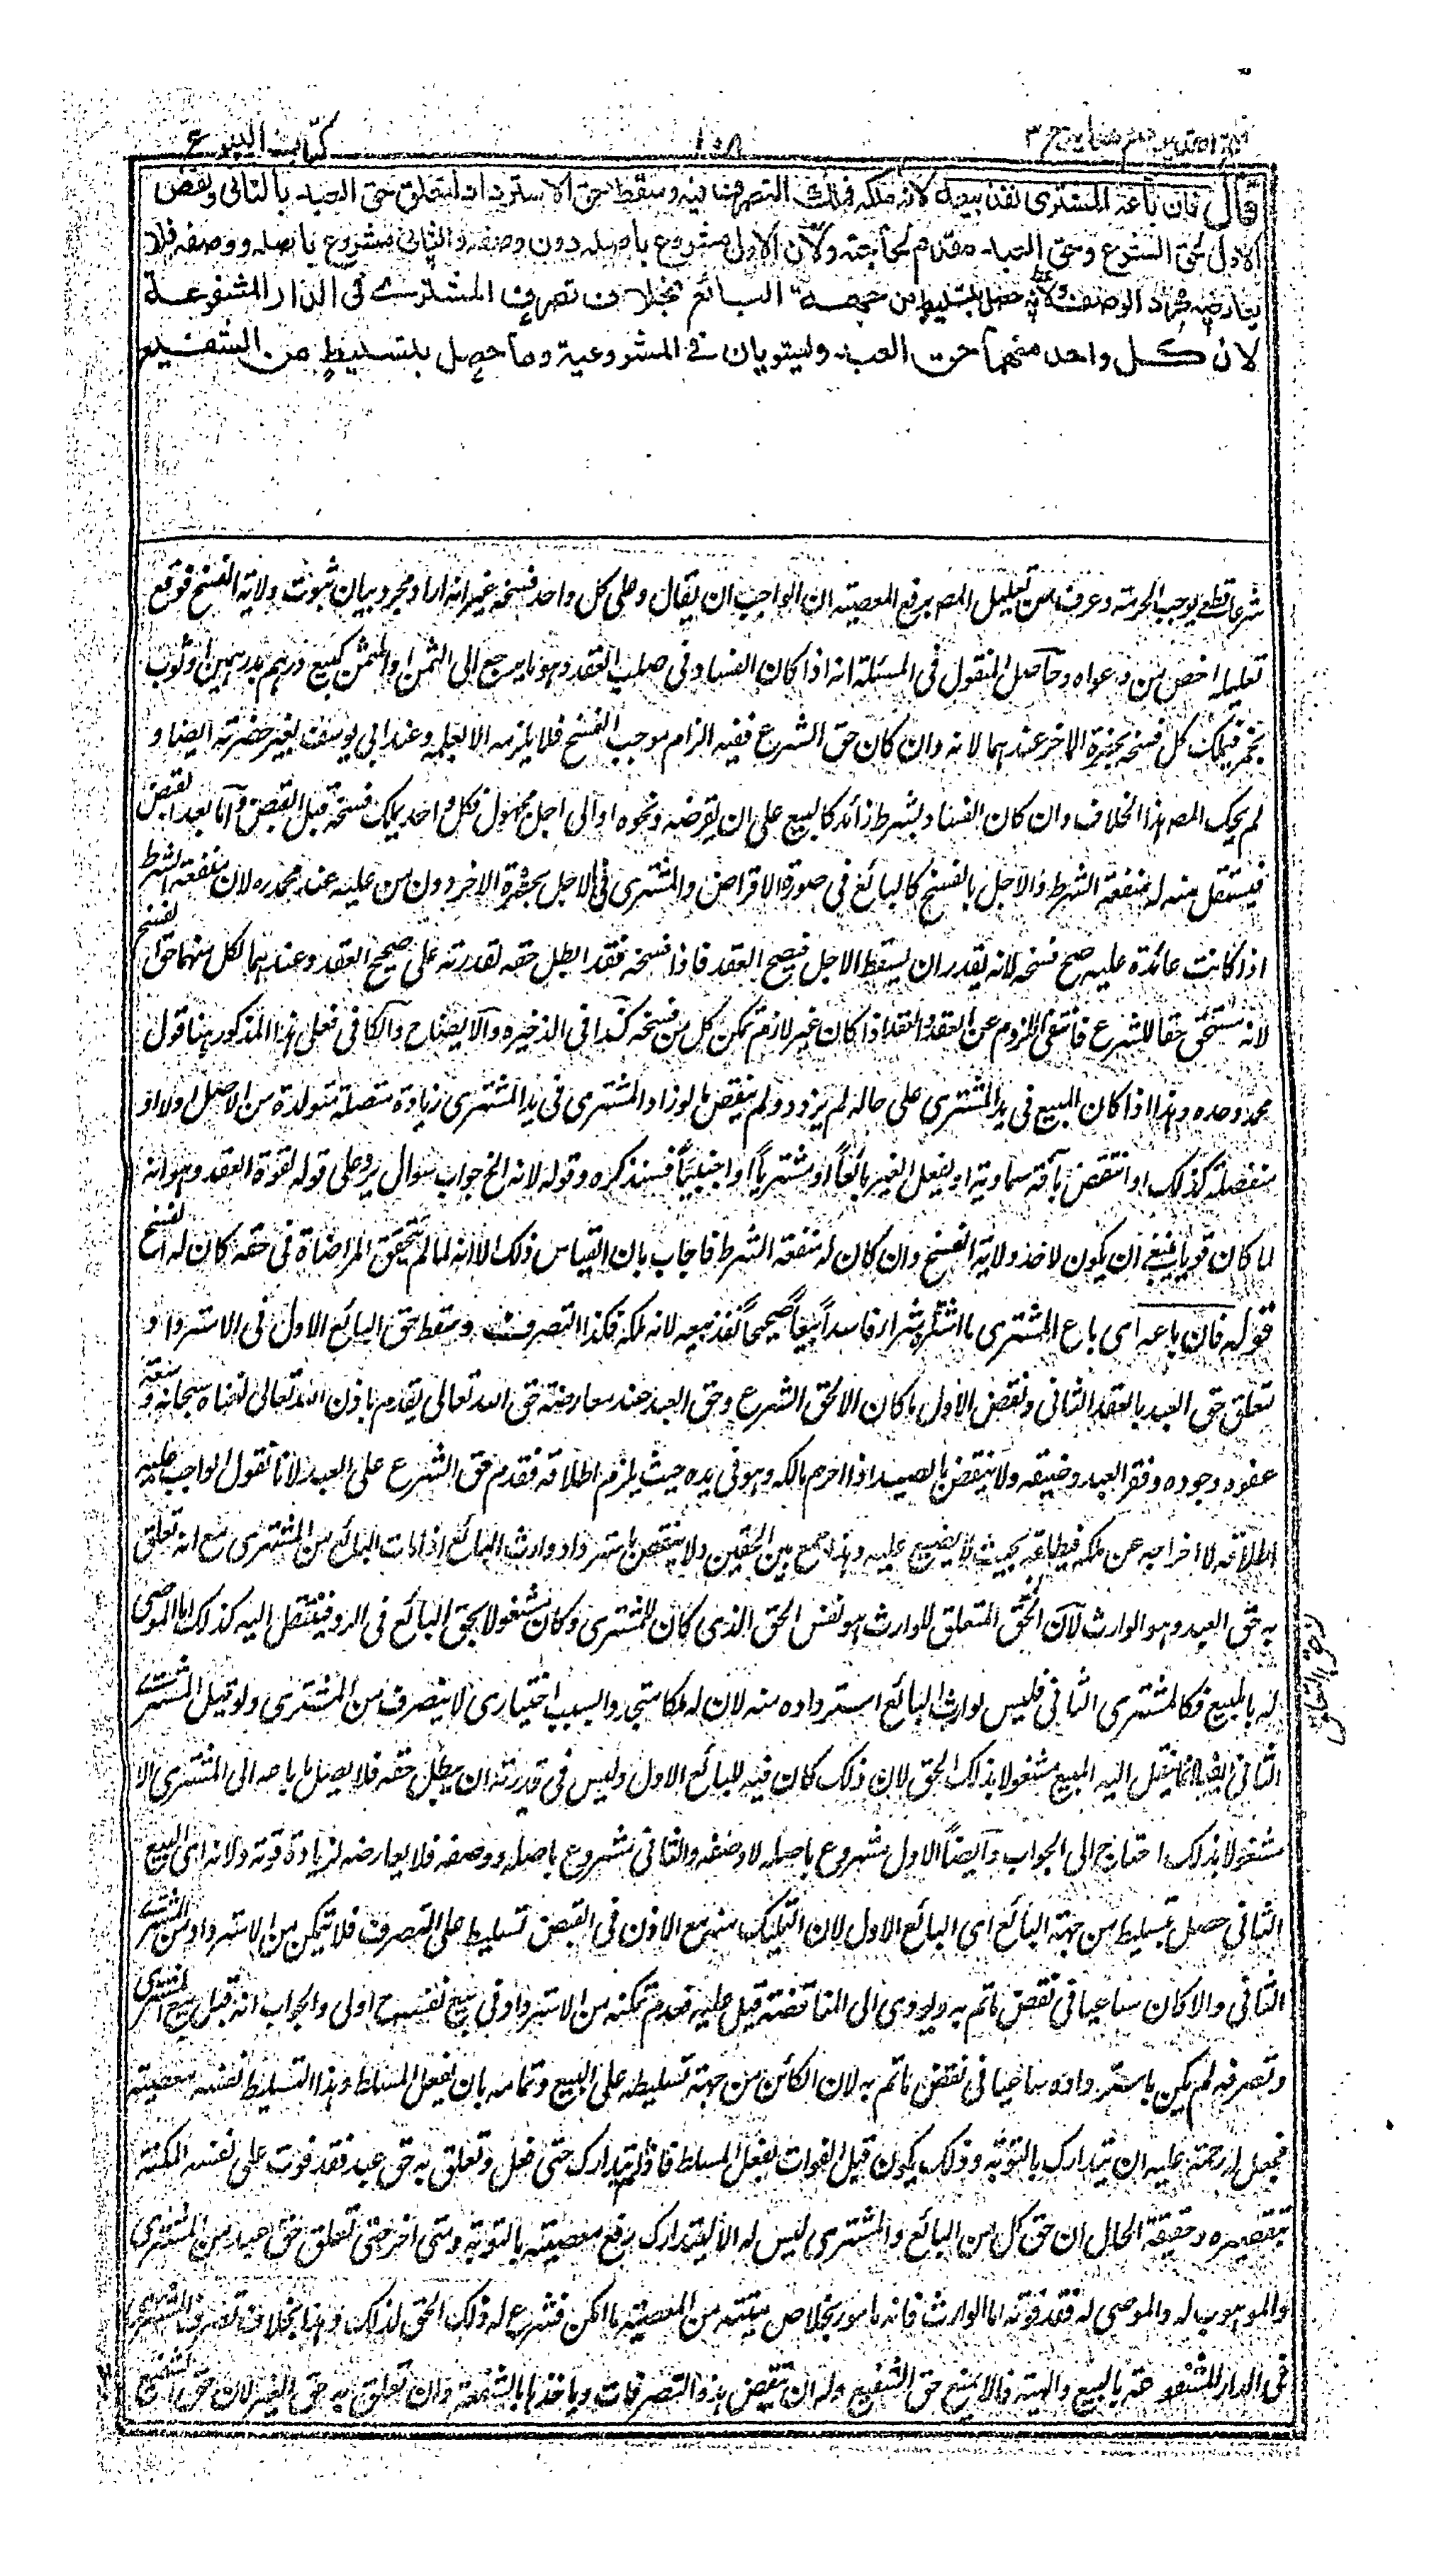 كتاب البيوع
قال فان باعه المشترى نفذ بيعه لانه ملكه فملك التصرف فيه وسقط حق الاسترداد لتعلق حق العبد بالثانى ونقض
الاول لحق الشرع وحق العبد مقدم لحاجته ولان الاول مشروع باصله دون وصفه والثانى مشروع باصله ووصفه فلا
يعارضه مجرد الوصف ولانه حصل بتسليط من جهة البائع بخلاف تصرف المشترى فى الدار المشفوعة
لان كل واحد منهما حق العبد وليتويان فى المشروعية وما حصل بتسليط من الشفيع
شرعا قطع يوجب الحرمة وعرف من تعليل المصم برفع المعصية ان الواجب ان يقال وعلى كل واحد فسخه غير انه اراد مجرد بيان ثبوت ولاية الفسخ فوقع
تعليله اخص من دعواه وحاصل المنقول فى المسئلة انه اذا كان الفساد فى صلب العقد وهو ما يرجع الى الثمن او المثمن كبيع درهم بدرهمين او ثوب
بخمر فيملك كل فسخه بحضرة الاخر عندهما لانه وان كان حق الشرع ففيه الزام موجب الفسخ فلا يلزمه الا بعلمه وعند ابى يوسف بغير حضرته ايضا و
لم يحك المصم هذا الخلاف وان كان الفساد لشرط زائد كالبيع على ان يقرضه ونحوه او الى اجل مجهول فكل واحد يملك فسخه قبل القبض وآما بعد القبض
فيستقل من له منفعة الشرط والاجل بالفسخ كالبائع فى صورة الاقراض والمشترى فى الاجل بحضرة الاخر دون من عليه عند محمد ره لان منفعة الشرط
اذا كانت عائدة عليه صح فسخه لانه يقدر ان يسقط الاجل فيصح العقد فاذا فسخه فقد ابطل حقه لقدرته على تصحيح العقد وعندهما لكل منهما حق الفسخ
لانه مستحق حقا للشرع فانتفى اللزوم عن العقد والعقد اذا كان غير لازم تمكن كل من فسخه كذا فى الذخيره والايضاح والكافى فعلى هذا المذكور هنا قول
محمد وحده وهذا اذا كان المبيع فى يد المشترى على حاله لم يزدد ولم ينقص ما لو زاد المشترى فى يد المشترى زيادة متصلة متولدة من الاصل او لا او
منفصلة كذلك او انتقص بآفة سماوية او بفعل الغير بائعا او مشتريا او اجنبيا فسنذكره وقوله لانه الخ جواب سوال يرد على قوله لقوة العقد وهو انه
لما كان قويا ينبغى ان يكون لاخذ ولاية الفسخ وان كان له منفعة الشرط فاجاب بان القياس ذلك الا انه لما لم يتحقق المراضاة فى حقه كان له الفسخ
قوله فان باعه اى باع المشترى ما اشتراه شراء فاسدا بيعا صحيحا نفذ بيعه لانه ملكه فكذا التصرف وسقط حق البائع الاول فى الاسترداد و
تعلق حق العبد بالعقد الثانى ونقض الاول ما كان الا لحق الشرع وحق العبد عند معارضته حق الله تعالى يقدم باذن الله تعالى لغناه سبحانه وسعة
عفوه وجوده وفقر العبد وضيقه ولا ينتقض بالصيد اذا احرم مالكه وهو فى يده حيث يلزم اطلاقه فقدم حق الشرع على العبد لانا نقول الواجب عليه
اطلاقه لا اخراجه عن ملكه فيطلقه بحيث لا يضيع عليه وهذا جمع بين الحقين ولا ينتقض باسترداد وارث البائع اذا مات البائع من المشترى مع انه تعلق
به حق العبد وهو الوارث لان الحق المتعلق للوارث هو نفس الحق الذى كان للمشترى وكان مشغولا بحق البائع فى الرد فينتقل اليه كذلك اما الموصى
له بالمبيع فكالمشترى الثانى فليس لوارث البائع استرداده منه لان له ملكا متجددا بسبب اختيارى لا يتصرف من المشترى ولو قيل المشترى
الثانى ايضا انما ينتقل اليه المبيع مشغولا بذلك الحق لان ذلك كان فيه للبائع الاول وليس فى قدرته ان يبطل حقه فلا يصل ما باعه الى المشترى الا
مشغولا بذلك احتاج الى الجواب وآيضا الاول مشروع باصله لا وصفه والثانى مشروع باصله ووصفه فلا يعارضه لزيادة قوته ولانه اى البيع
الثانى حصل بتسليط من جهة البائع اى البائع الاول لان التمليك منه مع الاذن فى القبض تسليط على التصرف فلا يتمكن من الاسترداد من المشترى
الثانى والا كان ساعيا فى نقض ما تم به ويودى الى المناقضة قيل عليه فعدم تمكنه من الاسترداد فى بيع نفسه اولى والجواب انه قبل بيع المشترى
وتصرفه لم يكن باسترداده ساعيا فى نقض ما تم به لان الكائن من جهته تسليطه على البيع وتمامه بان يفعل المسلط وهذا التسليط نفسه معصيته
فجعل له رحمة عليه ان يتدارك بالتوبة وذلك يكون قبل الفوات بفعل المسلط فاذا لم يتدارك حتى فعل وتعلق به حق عبد فقد فوت على نفسه المكنة
بتقصيره وحقيقة الحال ان حق كل من البائع والمشترى ليس له الا ليتدارك برفع معصيته بالتوبة ومتى اخر حتى تعلق حق عبد من المشترى
والموهوب له والموصى له فقد فوته اما الوارث فانه مامور بخلاص ميته من المعصية ما امكن فشرع له ذلك الحق لذلك وهذا بخلاف تصرف المشترى
فى الدار المشفوعة بالبيع والهبة والا يمنع حق الشفيع وله ان ينقض هذه التصرفات وياخذها بالشفعة وان تعلق به حق الغير لان حق الشفيع